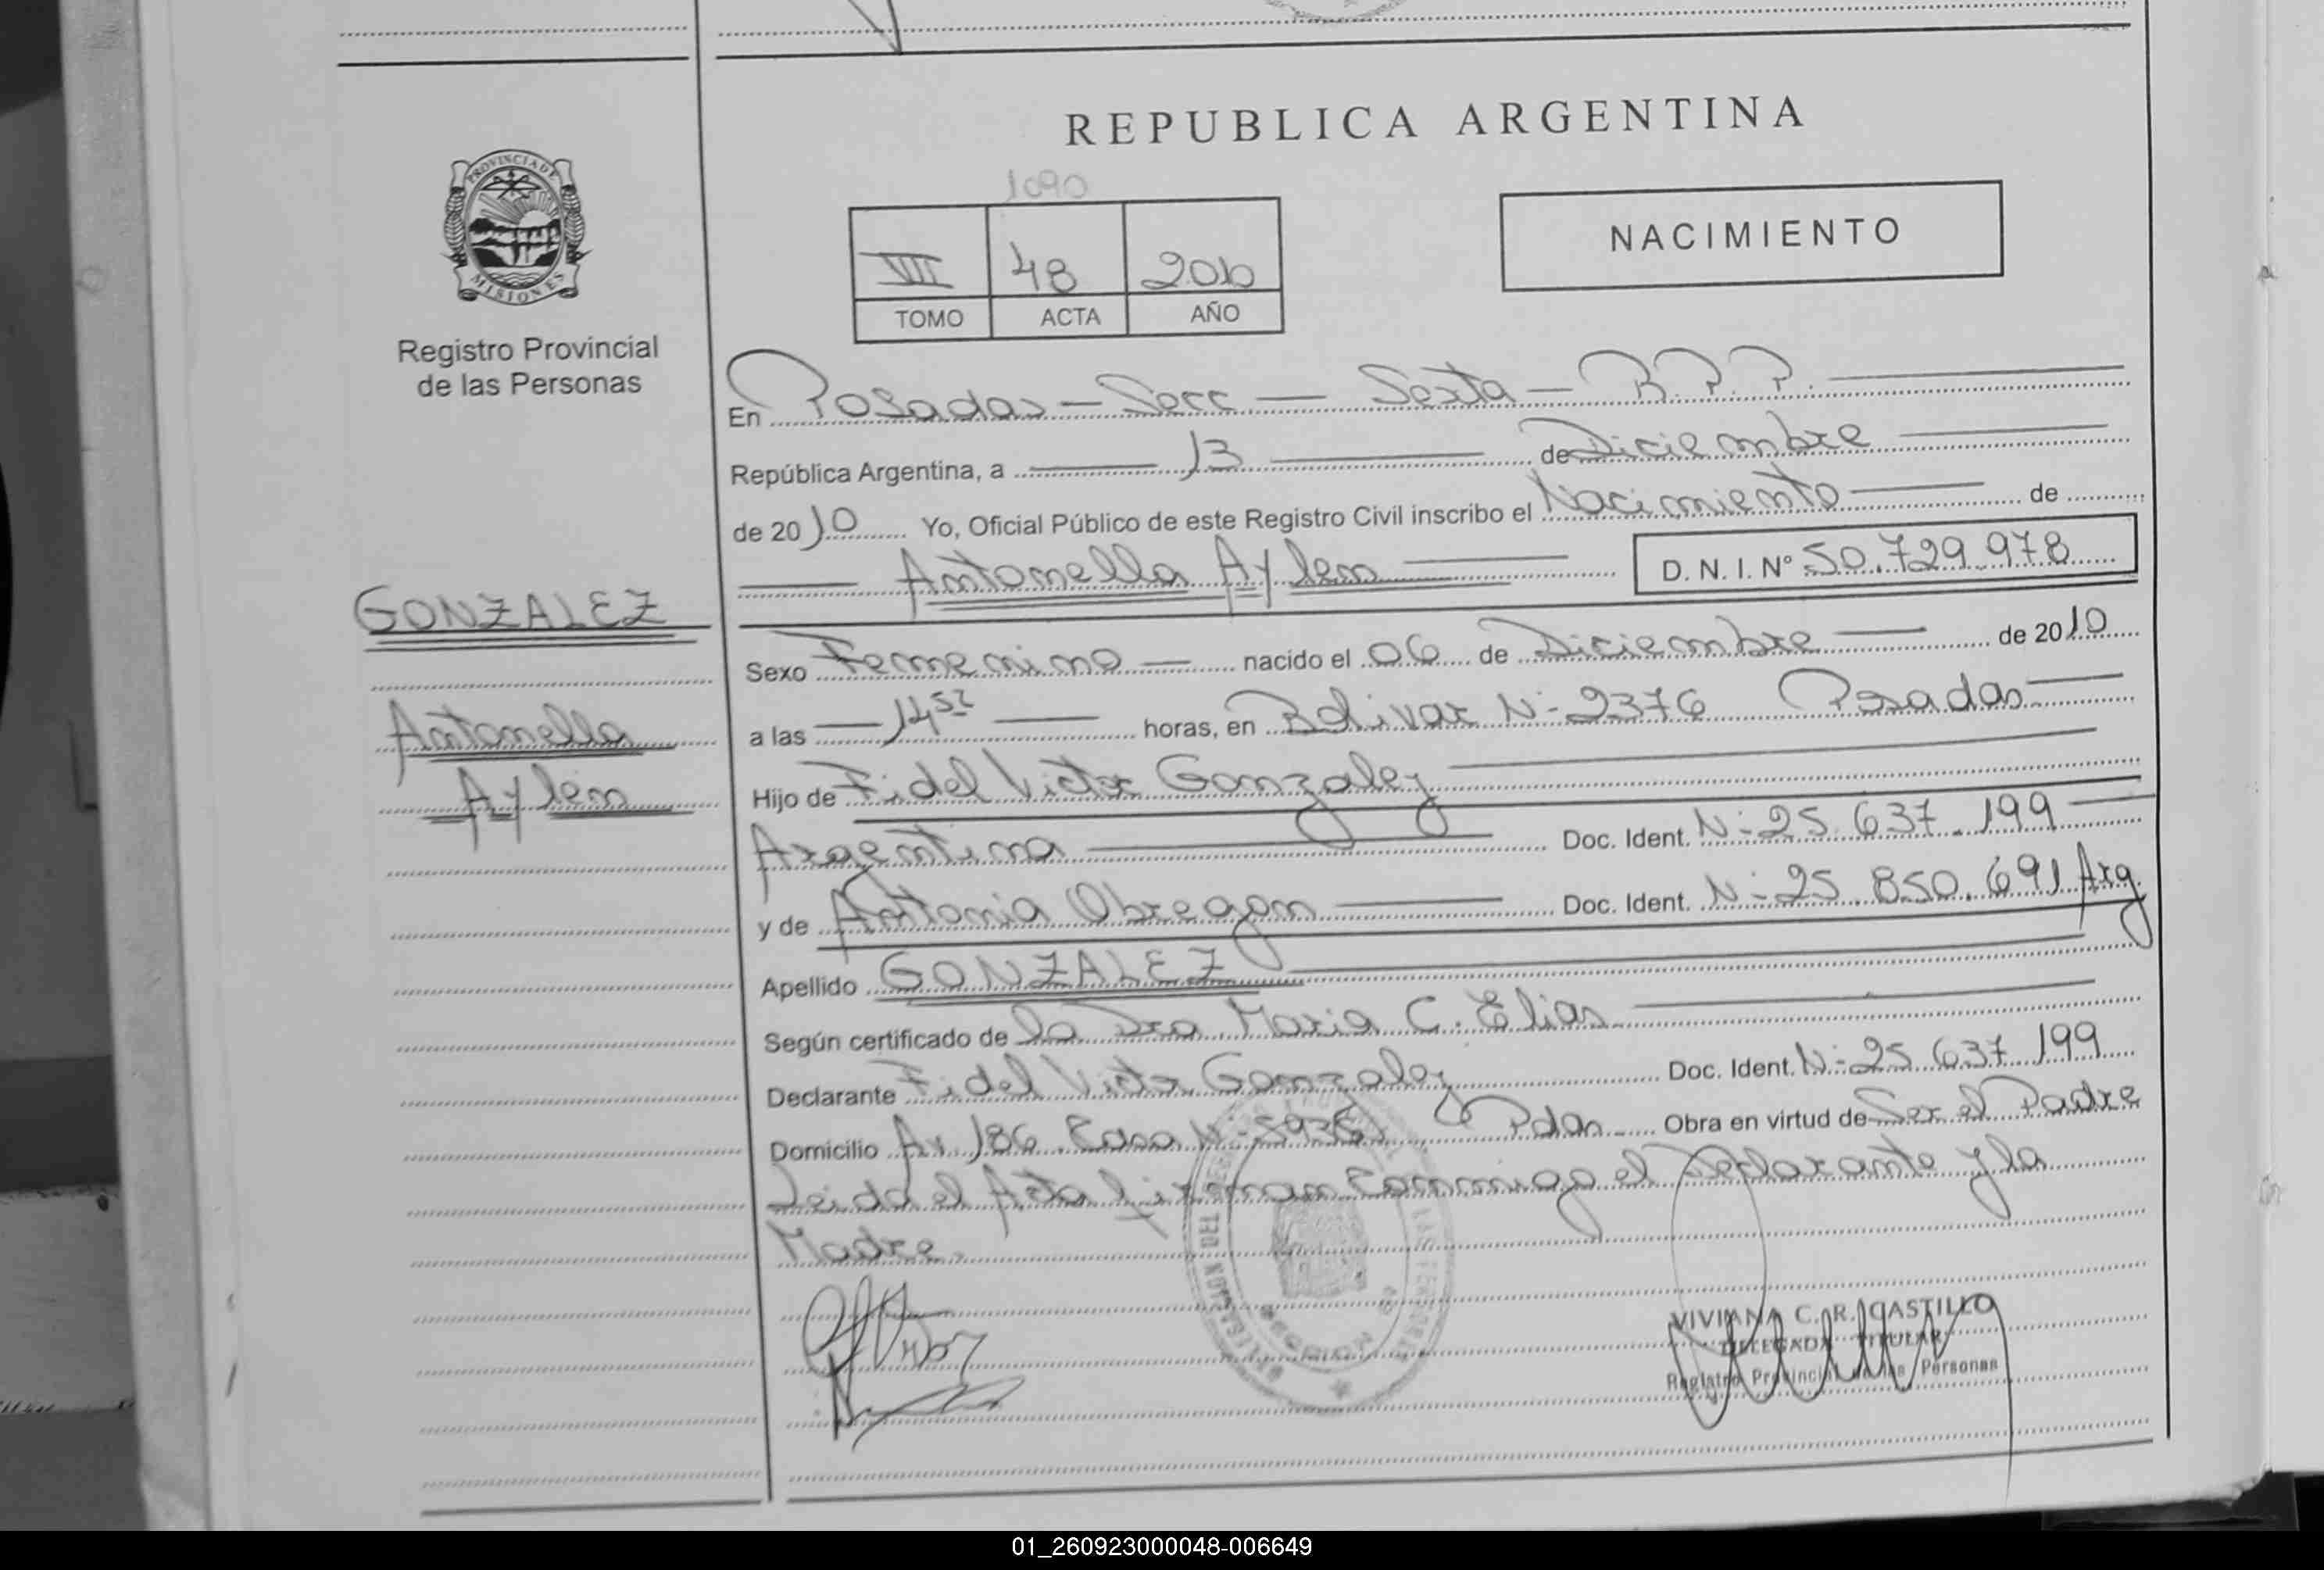 REPUBLICA ARGENTINA
1090
PROVINCIA DE MISIONES
Registro Provincial
de las Personas
VII 48 2010
TOMO ACTA AÑO
NACIMIENTO
En Posadas - Secc - Sexta - R.P.P.
República Argentina, a 13 de Diciembre
de 2010 Yo, Oficial Público de este Registro Civil inscribo el Nacimiento de
Antonella Aylen D. N. I. Nº 50.729.978
GONZALEZ
Antonella
Aylen
Sexo Femenino nacido el 06 de Diciembre de 2010
a las 14 52 horas, en Bolivar N- 2376 Posadas
Hijo de Fidel Victor Gonzalez
Argentina Doc. Ident. N- 25.637.199
y de Antonia Obregon Doc. Ident. N- 25.850.691 Arg
Apellido GONZALEZ
Según certificado de la Dra Maria C. Elias
Declarante Fidel Victor Gonzalez Doc. Ident. N- 25.637.199
Domicilio Av 186 Casa N- Pdas Obra en virtud de Ser el Padre
Leida el Acta firman conmigo el Declarante y la
Madre.
VIVIANA C. R. CASTILLO
DELEGADA TITULAR
Registro Provincial de las Personas
01_260923000048-006649